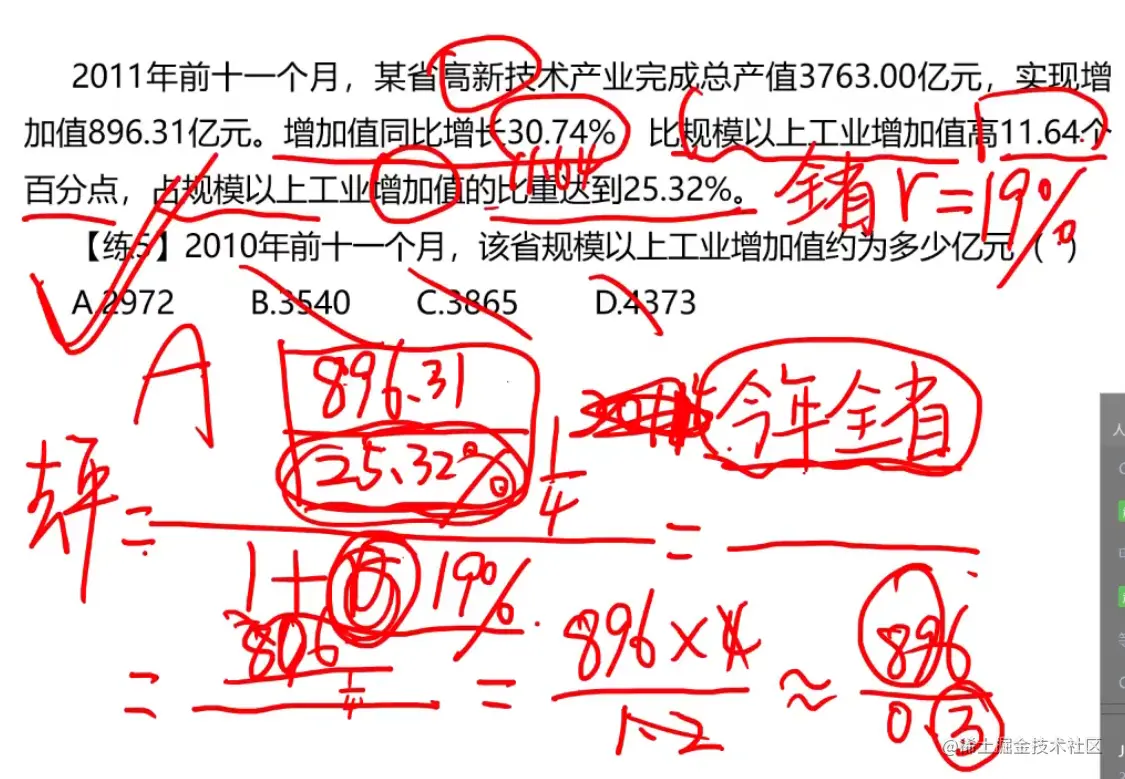 2011年前十一个月，某省高新技术产业完成总产值3763.00亿元，实现增
加值896.31亿元。增加值同比增长30.74%，比规模以上工业增加值高11.64个
百分点，占规模以上工业增加值的比重达到25.32%。
11.64
全省 r=19%
【练5】2010年前十一个月，该省规模以上工业增加值约为多少亿元（ ）
A.2972 B.3540 C.3865 D.4373
A
896.31
25.32%
1/4
今年全省
去年 =
=
1+ 19%
= 806
1/4
= 896×4
1.2
≈ 896
0.3
@稀土掘金技术社区